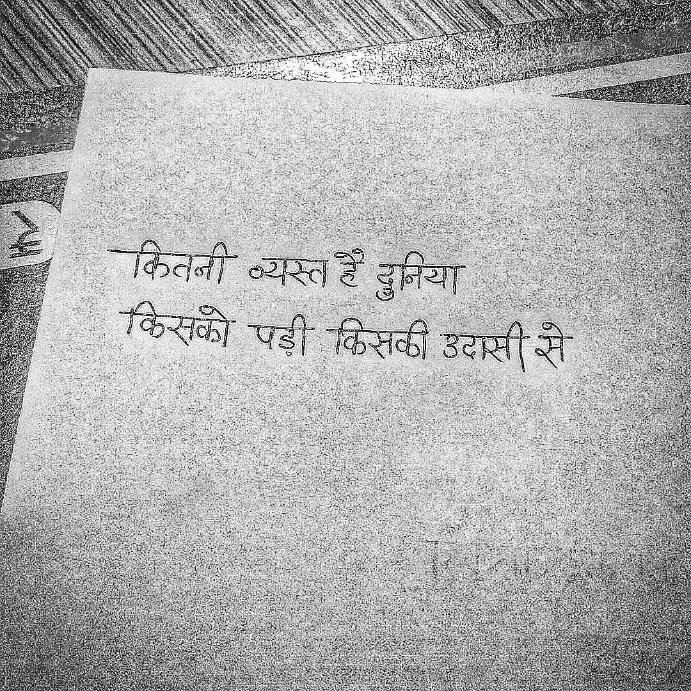 कितनी व्यस्त है दुनिया
किसको पड़ी किसकी उदासी से